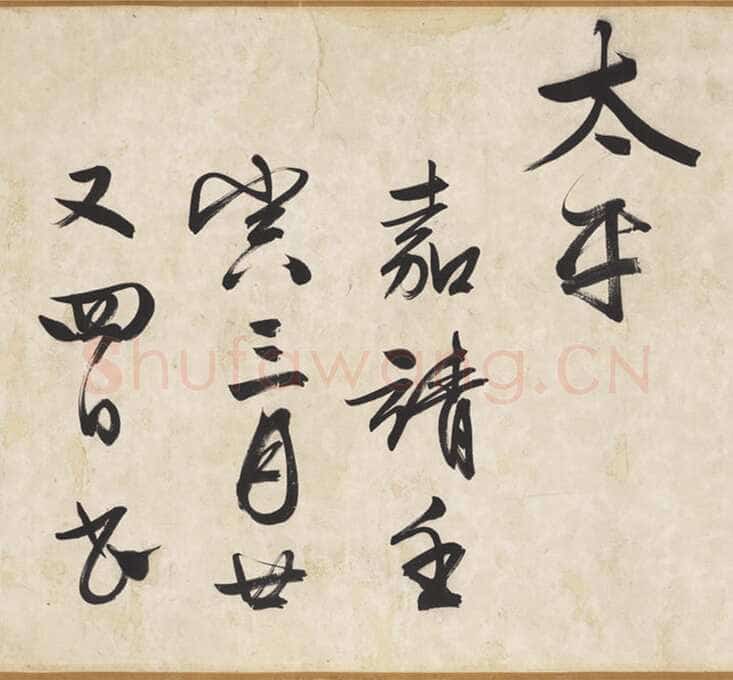 太平
嘉靖壬
寅三月廿
又四日书
Shufawang.CN